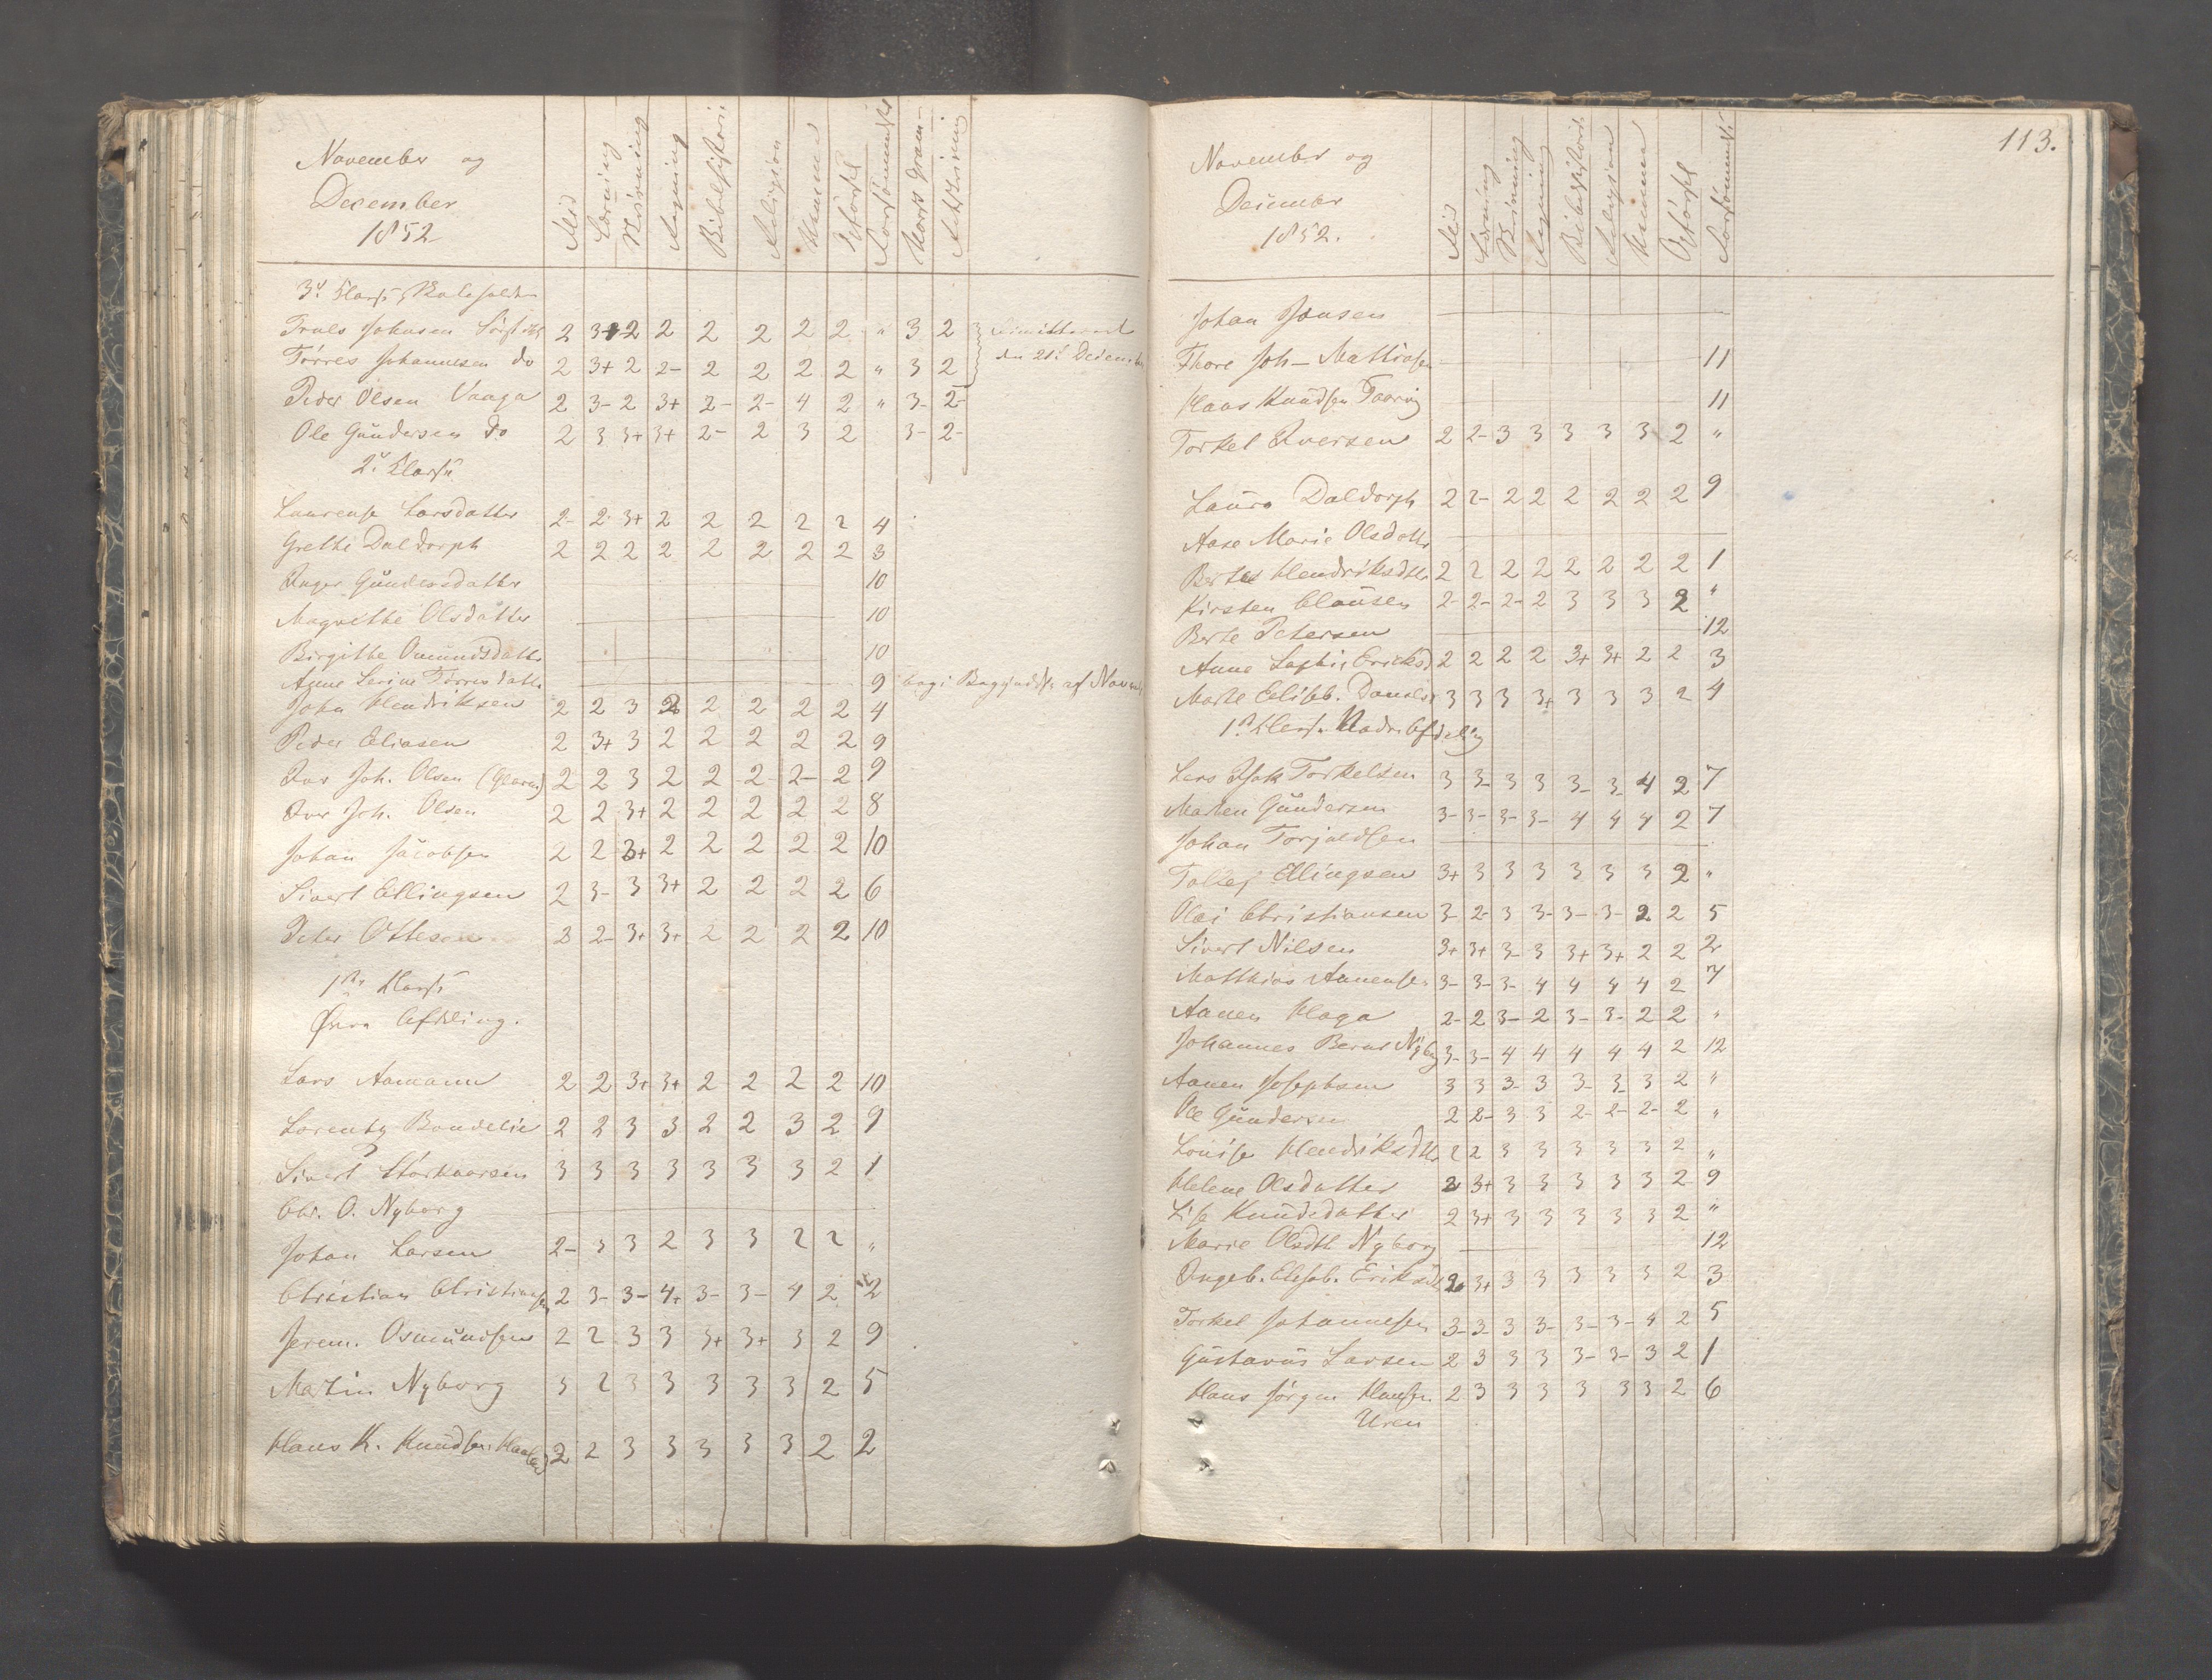 November og
December
1852
Flid Læsning Skrivning Regning Bibelhistorie Religion Udenad Opførsel Forsømmelse Norsk Gram- Retskrivning
Truls Johnsen 2 3+ 2 2 2 2 2 2 " 3 2 dimitteret
Tørres Johannesen do 2 3+ 2 2- 2 2 2 2 " 3 2 den 21d December
Peder Olsen Vaaga 2 3- 2 3+ 2- 2- 4 2 " 3- 2-
Ole Gundersen do 2 3 3+ 3+ 2- 2 3 2 3- 2-
2d Classe
Laurense Larsdatter 2- 2 3+ 2 2 2 2 2 4
Grethe Daldorph 2 2 2 2 2 2 2 2 3
Inger Gundersdatter 10
Magrethe Olsdatter 10
Birgithe Omundsdatter 10
Anne Serine Tørresdatter 9 Begyndelse af November
John Hendriksen 2 2 3 2 2 2 2 2 4
Peder Eliasen 2 3+ 3 2 2 2 2 2 9
Iver Joh. Olsen 2 2 3 2 2 2- 2- 2 9
Iver Joh. Olsen 2 2 3+ 2 2 2 2 2 8
Johan Jacobsen 2 2 3+ 2 2 2 2 2 10
Sivert Ellingsen 2 3- 3 3+ 2 2 2 2 6
Peter Ottesen 2 2- 3+ 3+ 2 2 2 2 10
1ste Classe
Øvre Afdeling.
Lars Aamann 2 2 3+ 3+ 2 2 2 2 10
Lorentz Bondelie 2 2 3 3 2 2 3 2 9
Sivert Størkaarsen 3 3 3 3 3 3 3 2 1
Chr. O. Nyborg
Johan Larsen 2- 3 3 2 3 3 2 2 "
Christian Christiansen 2 3- 3- 4+ 3- 3- 4 2 2
Jerem. Osmundsen 2 2 3 3 3+ 3+ 3 2 9
Martin Nyborg 3 2 3 3 3 3 3 2 5
Hans K. Knudsen 2 2 3 3 3 3 3 2 2
113.
November og
December
1852.
Flid Læsning Skrivning Regning Bibelhistorie Religion Udenad Opførsel Forsømmelse
Johan Jansen
Thore Joh- Mathiasen 11
Hans Knudsen 11
Torkel Iversen 2 2- 3 3 3 3 3 2 "
Laura Daldorph 2 2- 2 2 2 2 2 2 9
Aase Marie Olsdatter
Berte Hendriksdtr 2 2 2 2 2 2 2 2 1
Kirsten Clausen 2- 2- 2- 2 3 3 3 2 "
Berte Petersen 12
Anne Sophie Ericksd 2 2 2 2 3+ 3+ 2 2 3
Marte Elisb. Danielsd 3 3 3 3+ 3 3 3 2 4
1ste Classe Nedre Afdeling
Lars Isak Torkelsen 3 3- 3 3 3- 3- 4 2 7
Marten Gundersen 3- 3- 3- 3- 4 4 4 2 7
Johan Torjuldsen
Tollef Ellingsen 3+ 3 3 3 3 3 3 2 "
Olai Christiansen 3- 2- 3 3- 3- 3- 2 2 5
Sivert Nilsen 3+ 3+ 3- 3 3+ 3+ 2 2 2
Matthias Aanensen 3- 3- 3- 4 4 4 4 2 7
Aanen Haga 2- 2 3- 2 3- 3- 2 2 "
Johannes Bernt Nyborg 3- 3- 4 4 4 4 4 2 12
Aanen Josephsen 3 3 3- 3 3- 3- 3 2 "
Ole Gundersen 2 2- 3 3 2- 2- 2- 2 "
Louise Hendriksdtr 2 2 3 3 3 3 3 2 "
Helene Olsdatter 2 3+ 3 3 3 3 3 2 9
Lise Knudsdatter 2 3+ 3 3 3 3 3 2 "
Marie Olsdtr Nyborg 12
Ingeb. Elisab. Eriksd 2 3+ 3 3 3 3 3 2 3
Torkel Johannesen 3- 3- 3 3- 3- 3- 4 2 5
Gustavus Larsen 2 3 3 3 3- 3- 3 2 1
Hans Jörgen Hansen 2 3 3 3 3 3 3 2 6
Uren